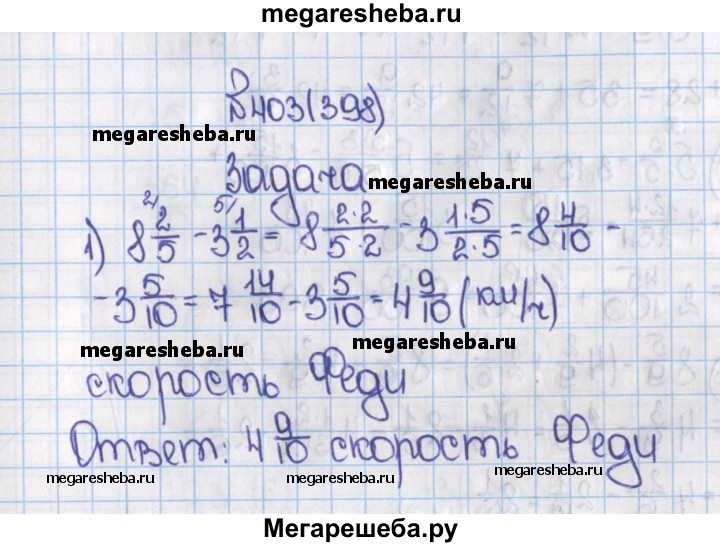 megaresheba.ru
№403(398)
megaresheba.ru
Задача megaresheba.ru
1) 8 2/5 2/ - 3 1/2 5/ = 8 2·2/5·2 - 3 1·5/2·5 = 8 4/10 -
- 3 5/10 = 7 14/10 - 3 5/10 = 4 9/10 (км/ч)
megaresheba.ru megaresheba.ru
скорость Феди
Ответ: 4 9/10 скорость Феди
megaresheba.ru megaresheba.ru megaresheba.ru
Мегарешеба.ру